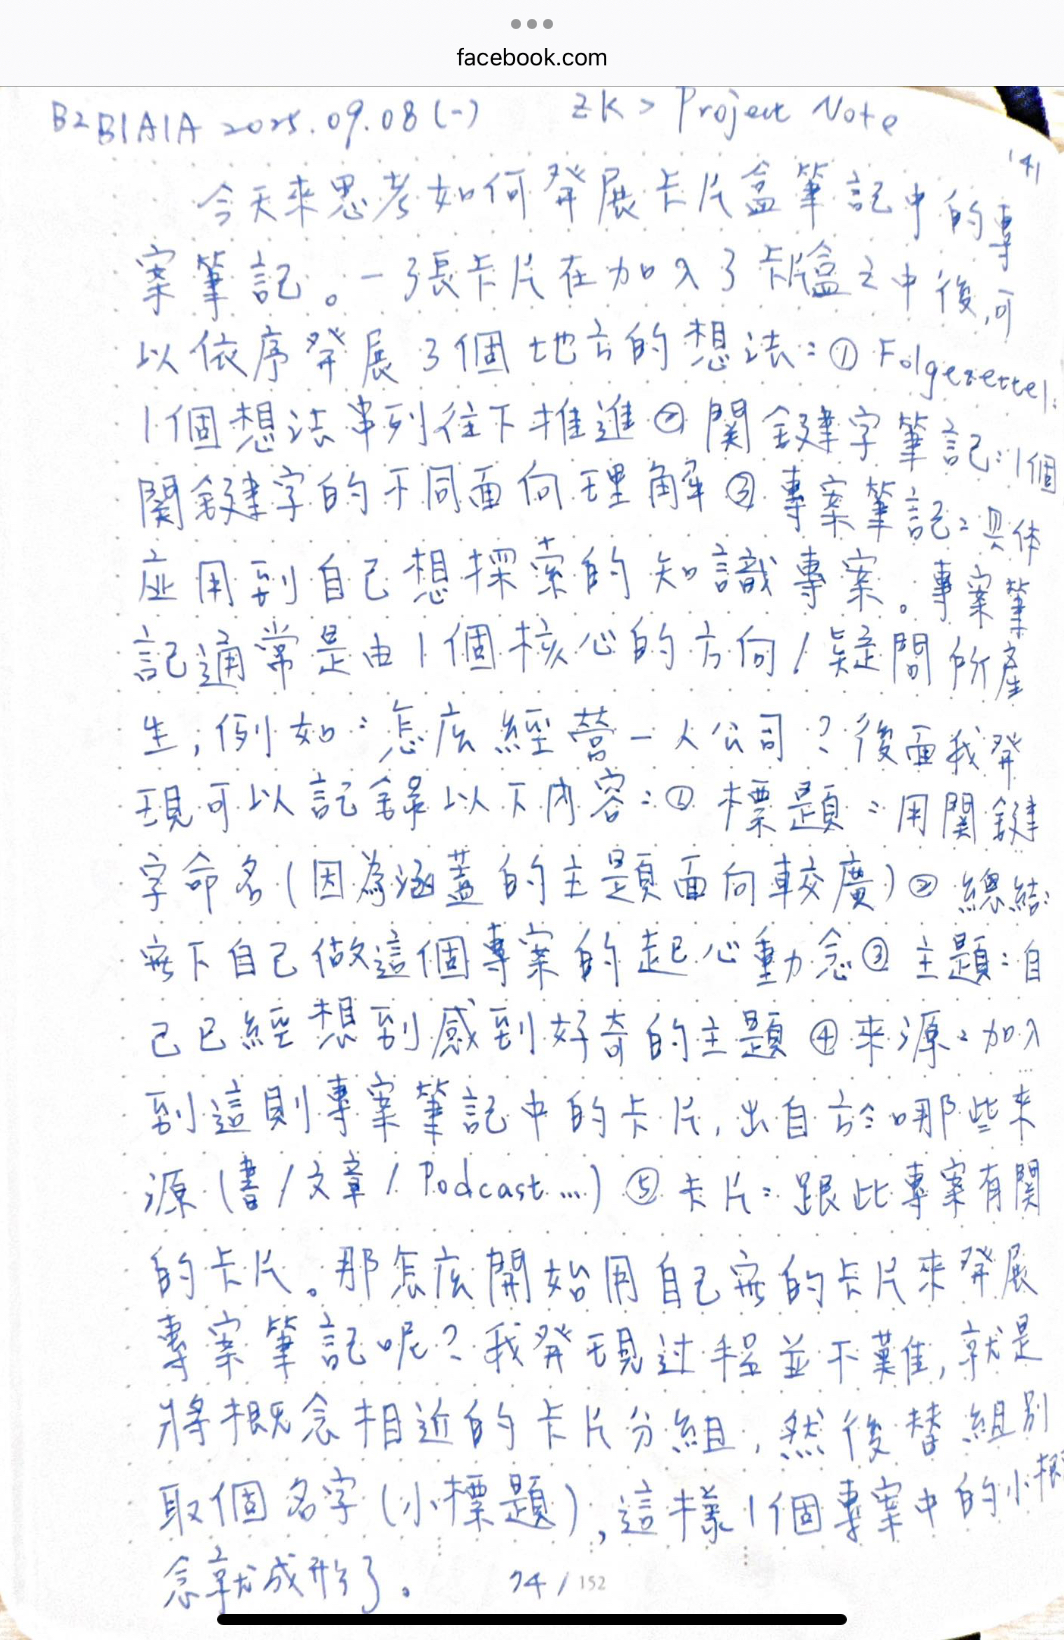 facebook.com
B2B1A1A 2025.09.08(一) ZK > Project Note
141
今天來思考如何發展卡片盒筆記中的專
案筆記。一張卡片在加入了卡片盒之中後,可
以依序發展3個地方的想法:① Folgezettel:
1個想法串列往下推進② 關鍵字筆記:1個
關鍵字的不同面向理解③ 專案筆記:具体
应用到自己想探索的知識專案。專案筆
記通常是由1個核心的方向/疑問所產
生,例如:怎麼經營一人公司?後面我發
現可以記錄以下內容:① 標題:用關鍵
字命名(因為涵蓋的主題面向較廣)② 總結:
寫下自己做這個專案的起心動念③ 主題:自
己已經想到感到好奇的主題④ 來源:加入
到這則專案筆記中的卡片,出自於哪些來
源(書/文章/Podcast...)⑤ 卡片:跟此專案有關
的卡片。那怎麼開始用自己寫的卡片來發展
專案筆記呢?我發現过程並不難,就是
將概念相近的卡片分組,然後替組別
取個名字(小標題),這樣1個專案中的小概
念就成形了。
74/152